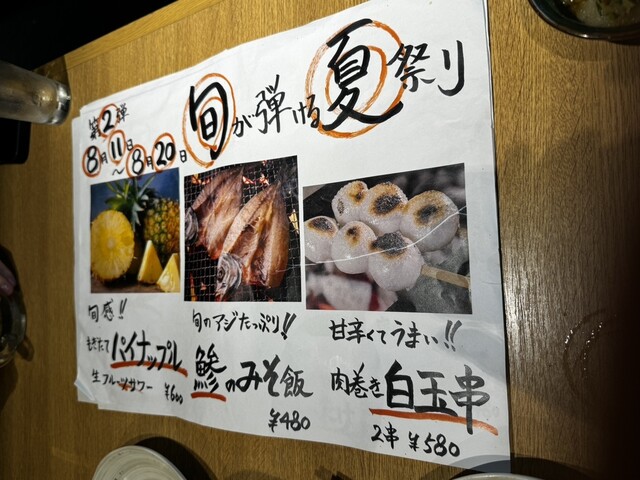 旬が弾ける夏祭り
第2弾
8月11日
～8月20日
旬感!!
もぎたて パイナップル
生フルーツサワー ¥600
旬のアジたっぷり!!
鯵のみそ飯
¥480
甘辛くてうまい!!
肉巻き 白玉串
2串 ¥580